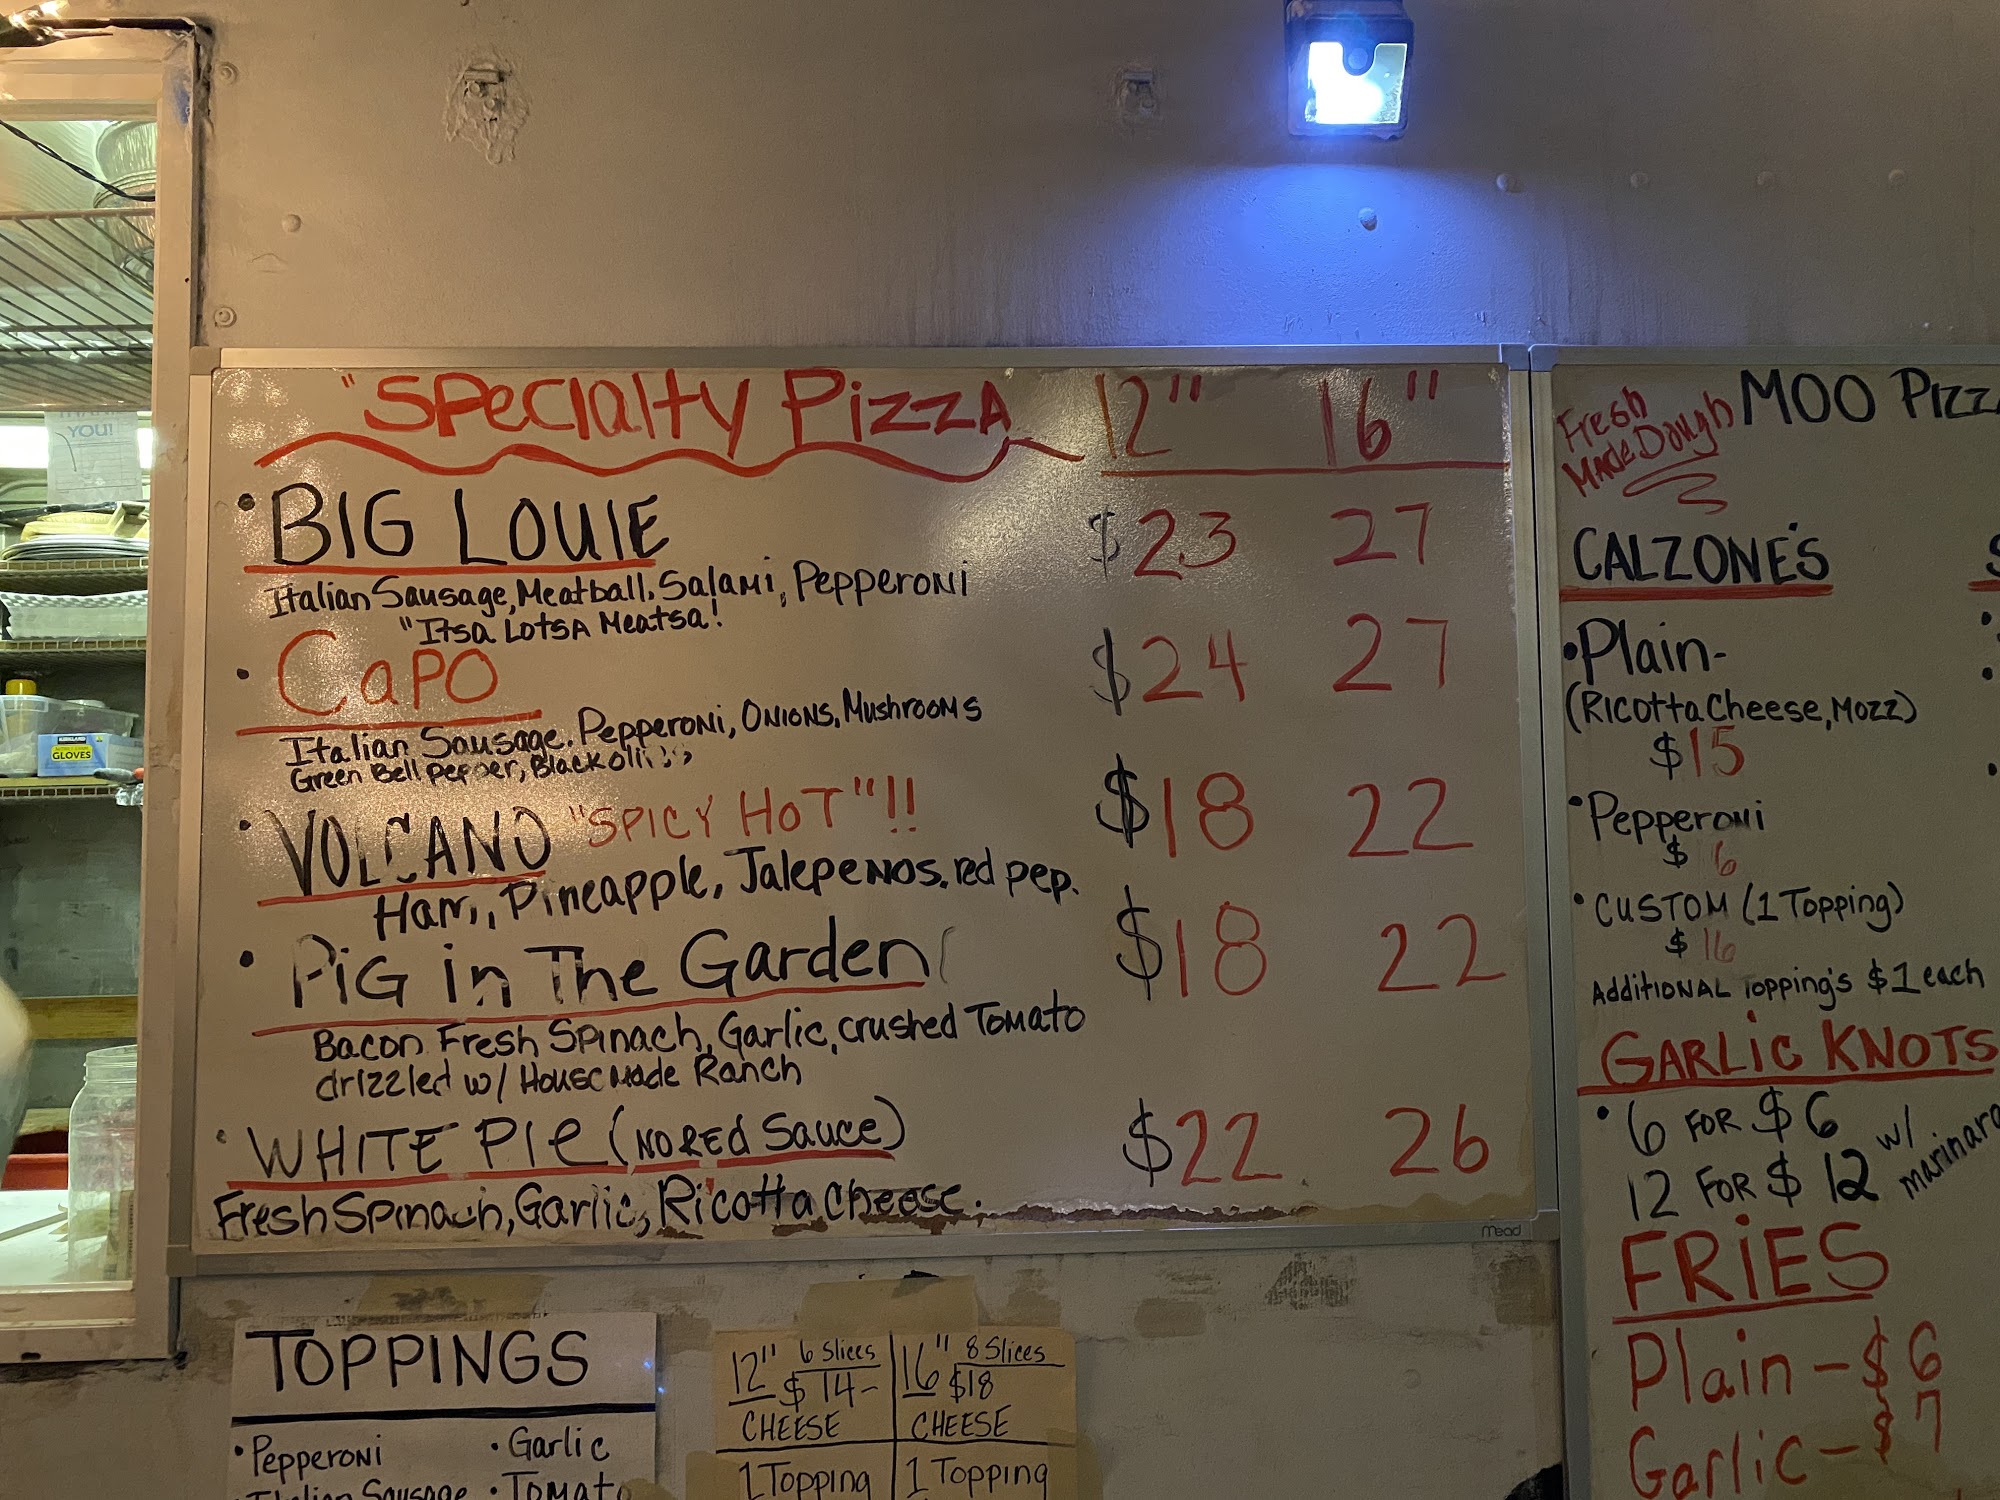 "Specialty Pizza 12" 16"
• BIG LOUIE $23 27
Italian Sausage, Meatball, Salami, Pepperoni
"Itsa Lotsa Meatsa!
• Capo $24 27
Italian Sausage, Pepperoni, Onions, Mushrooms
Green Bell pepper, Black
• VOLCANO "SPICY HOT"!! $18 22
Ham, Pineapple, Jalepenos, red pep.
• PiG in The Garden $18 22
Bacon Fresh Spinach, Garlic, crushed Tomato
drizzled w/ House made Ranch
• WHITE PIE (NO RED Sauce) $22 26
Fresh Spinach, Garlic, Ricotta Cheese.
Mead
Fresh
Made Dough
MOO
CALZONE'S
• Plain-
(Ricotta Cheese, Mozz)
$15
• Pepperoni
$ 6
• CUSTOM (1 Topping)
$ 16
Additional Topping's $1 each
GARLIC KNOTS
• 6 FOR $6
12 FOR $12 w/
marinara
FRiES
Plain - $6
Garlic - $7
TOPPINGS
• Pepperoni
• Garlic
Italian Sausage
12" 6 Slices
$14-
CHEESE
1 Topping
16" 8 Slices
$18
CHEESE
1 Topping
YOU!
KIRKLAND
GLOVES